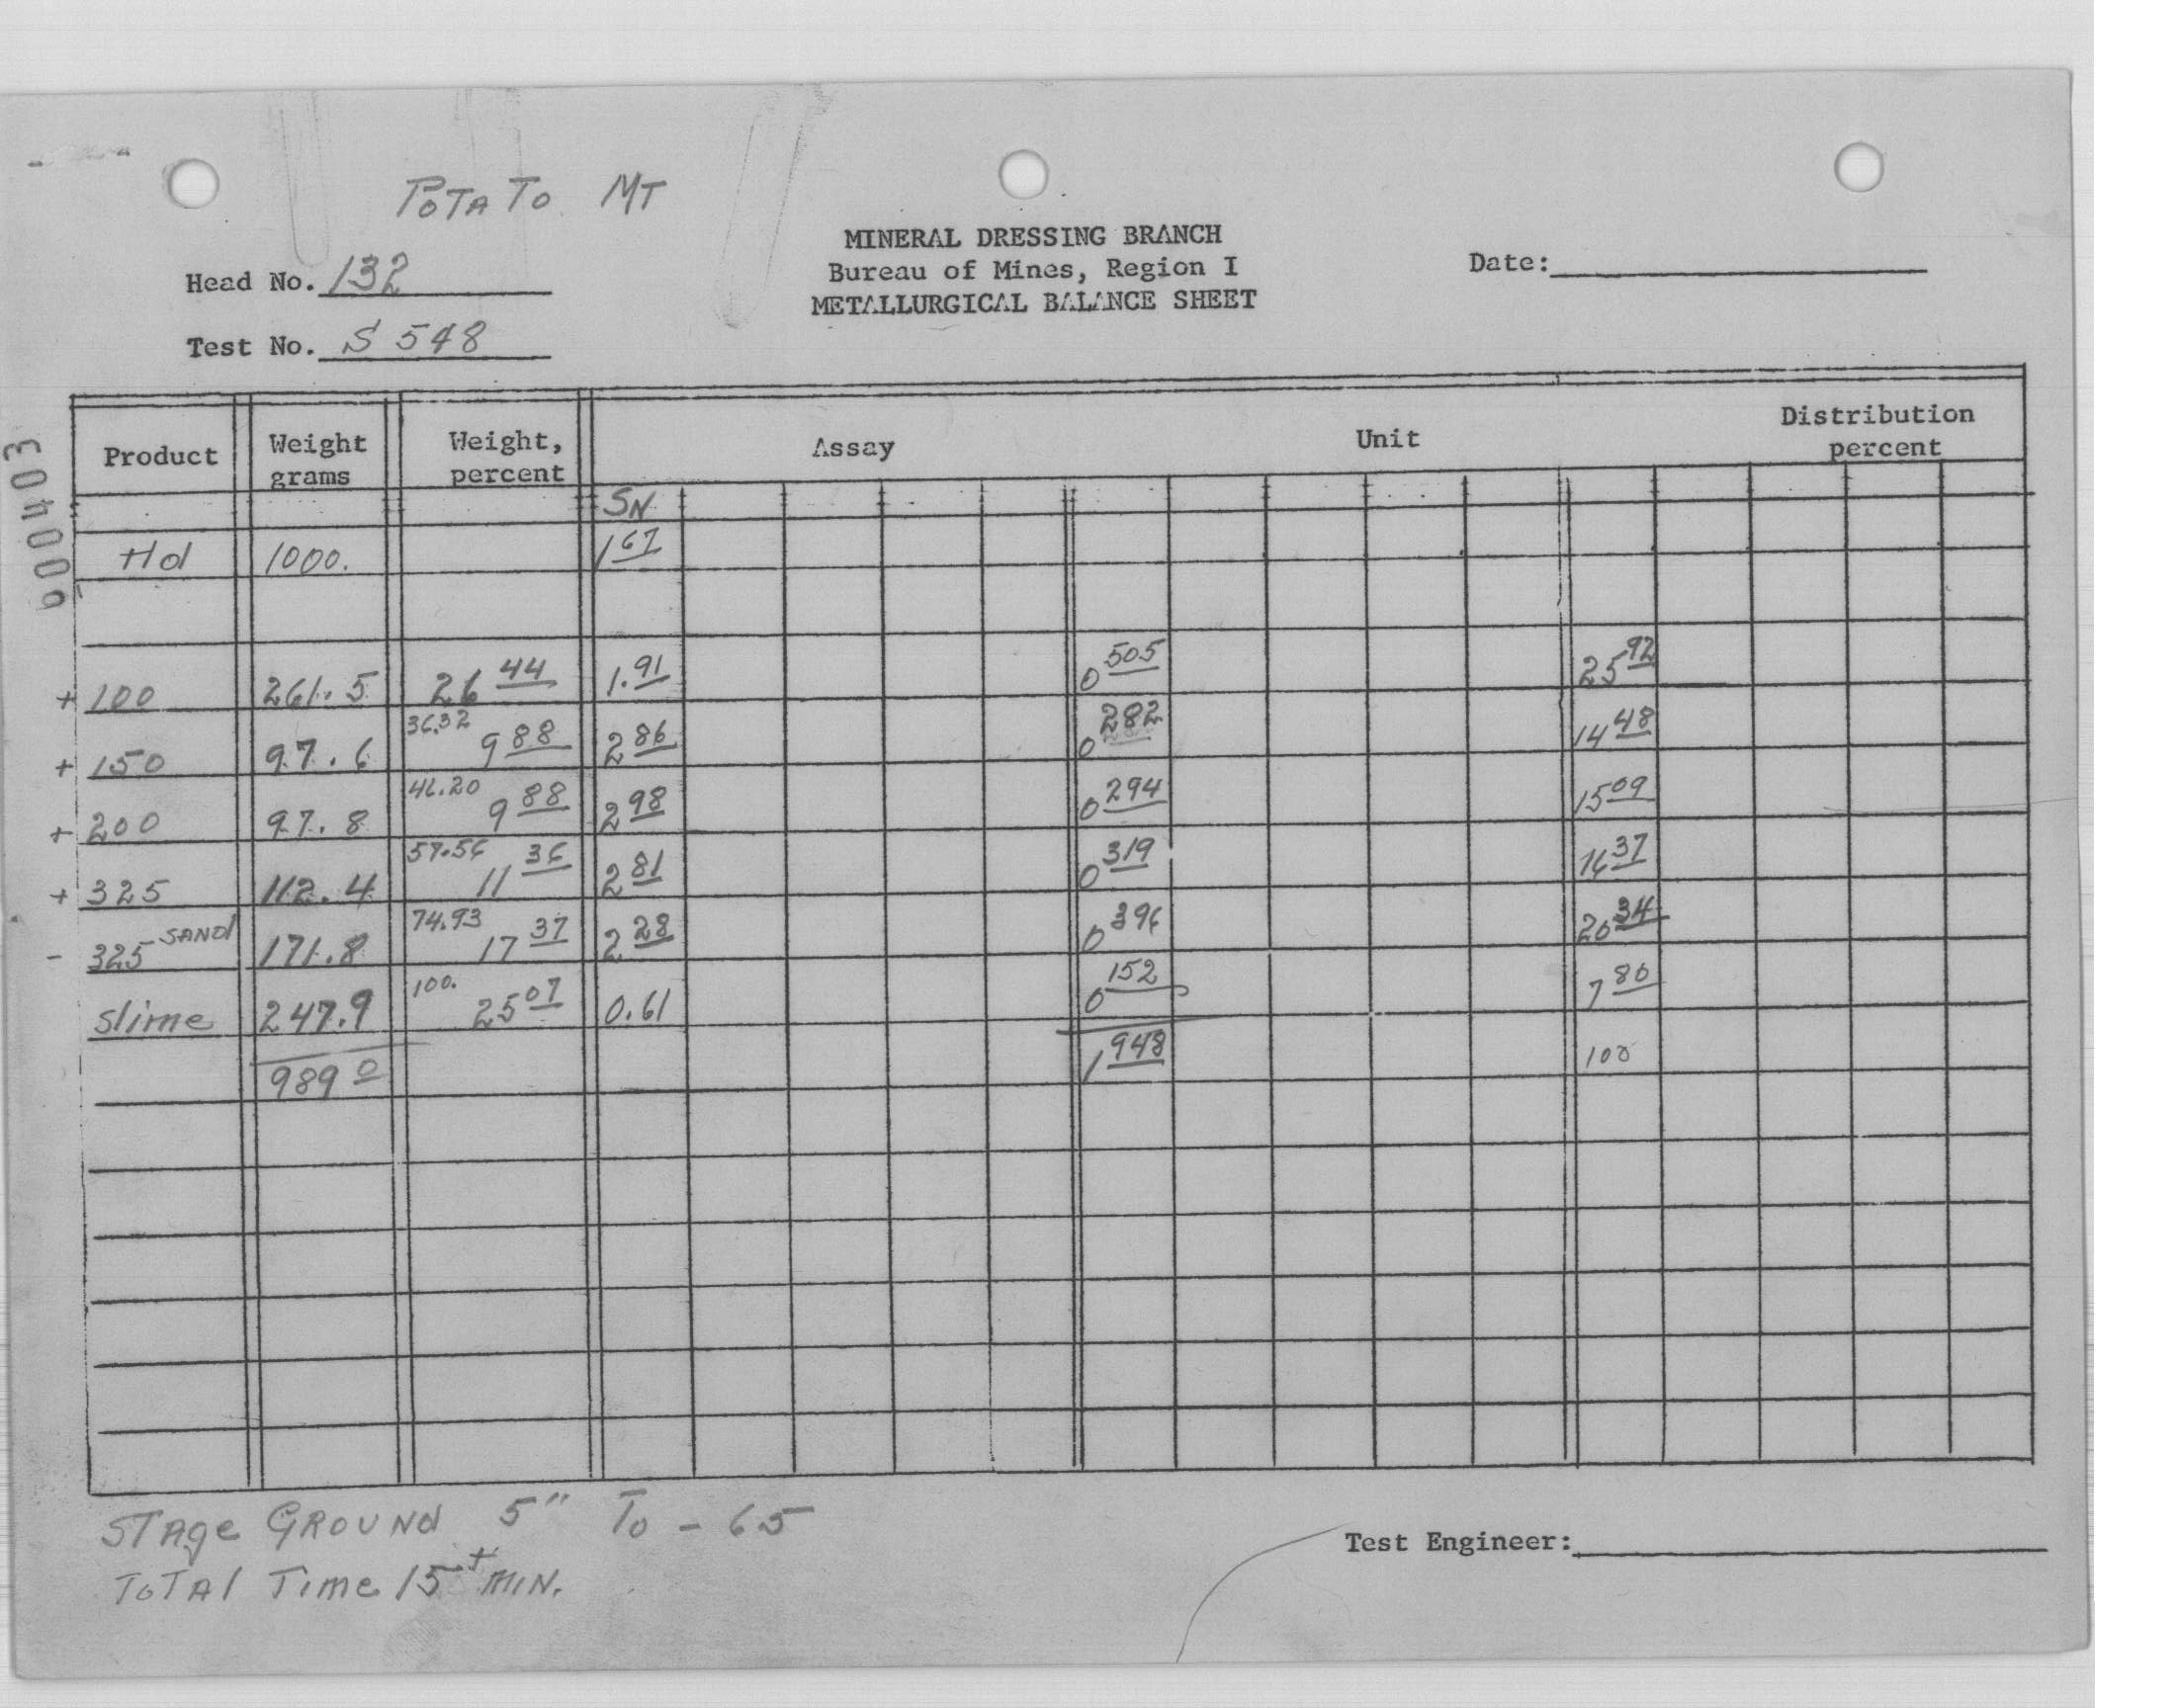 POTATO MT
MINERAL DRESSING BRANCH
Bureau of Mines, Region I
METALLURGICAL BALANCE SHEET
Date:
Head No. 132
Test No. S 548
Product Weight grams Weight, percent Assay Unit Distribution percent
SN
Hd 1000. 1 67
+ 100 261.5 26 44 1.91 0 505 25 92
+ 150 97.6 36.32 9 88 2 86 0 282 14 48
+ 200 97.8 46.20 9 88 2 98 0 294 15 09
+ 325 112.4 57.56 11 36 2 81 0 319 16 37
- 325 SAND 171.8 74.93 17 37 2 28 0 396 20 34
Slime 247.9 100. 25 07 0.61 0 152 7 80
989 0 1 948 100
STAge GROUND 5" To - 65
TOTAl Time 15+ MIN.
Test Engineer: